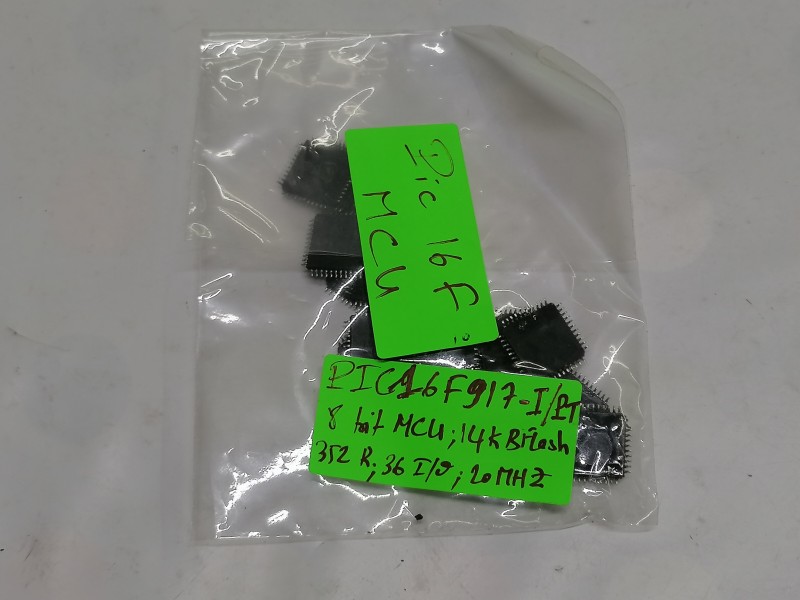 Pic 16F
MCU
PIC16F917-I/PT
8 bit MCU; 14KB Flash
352 R; 36 I/O; 20 MHZ